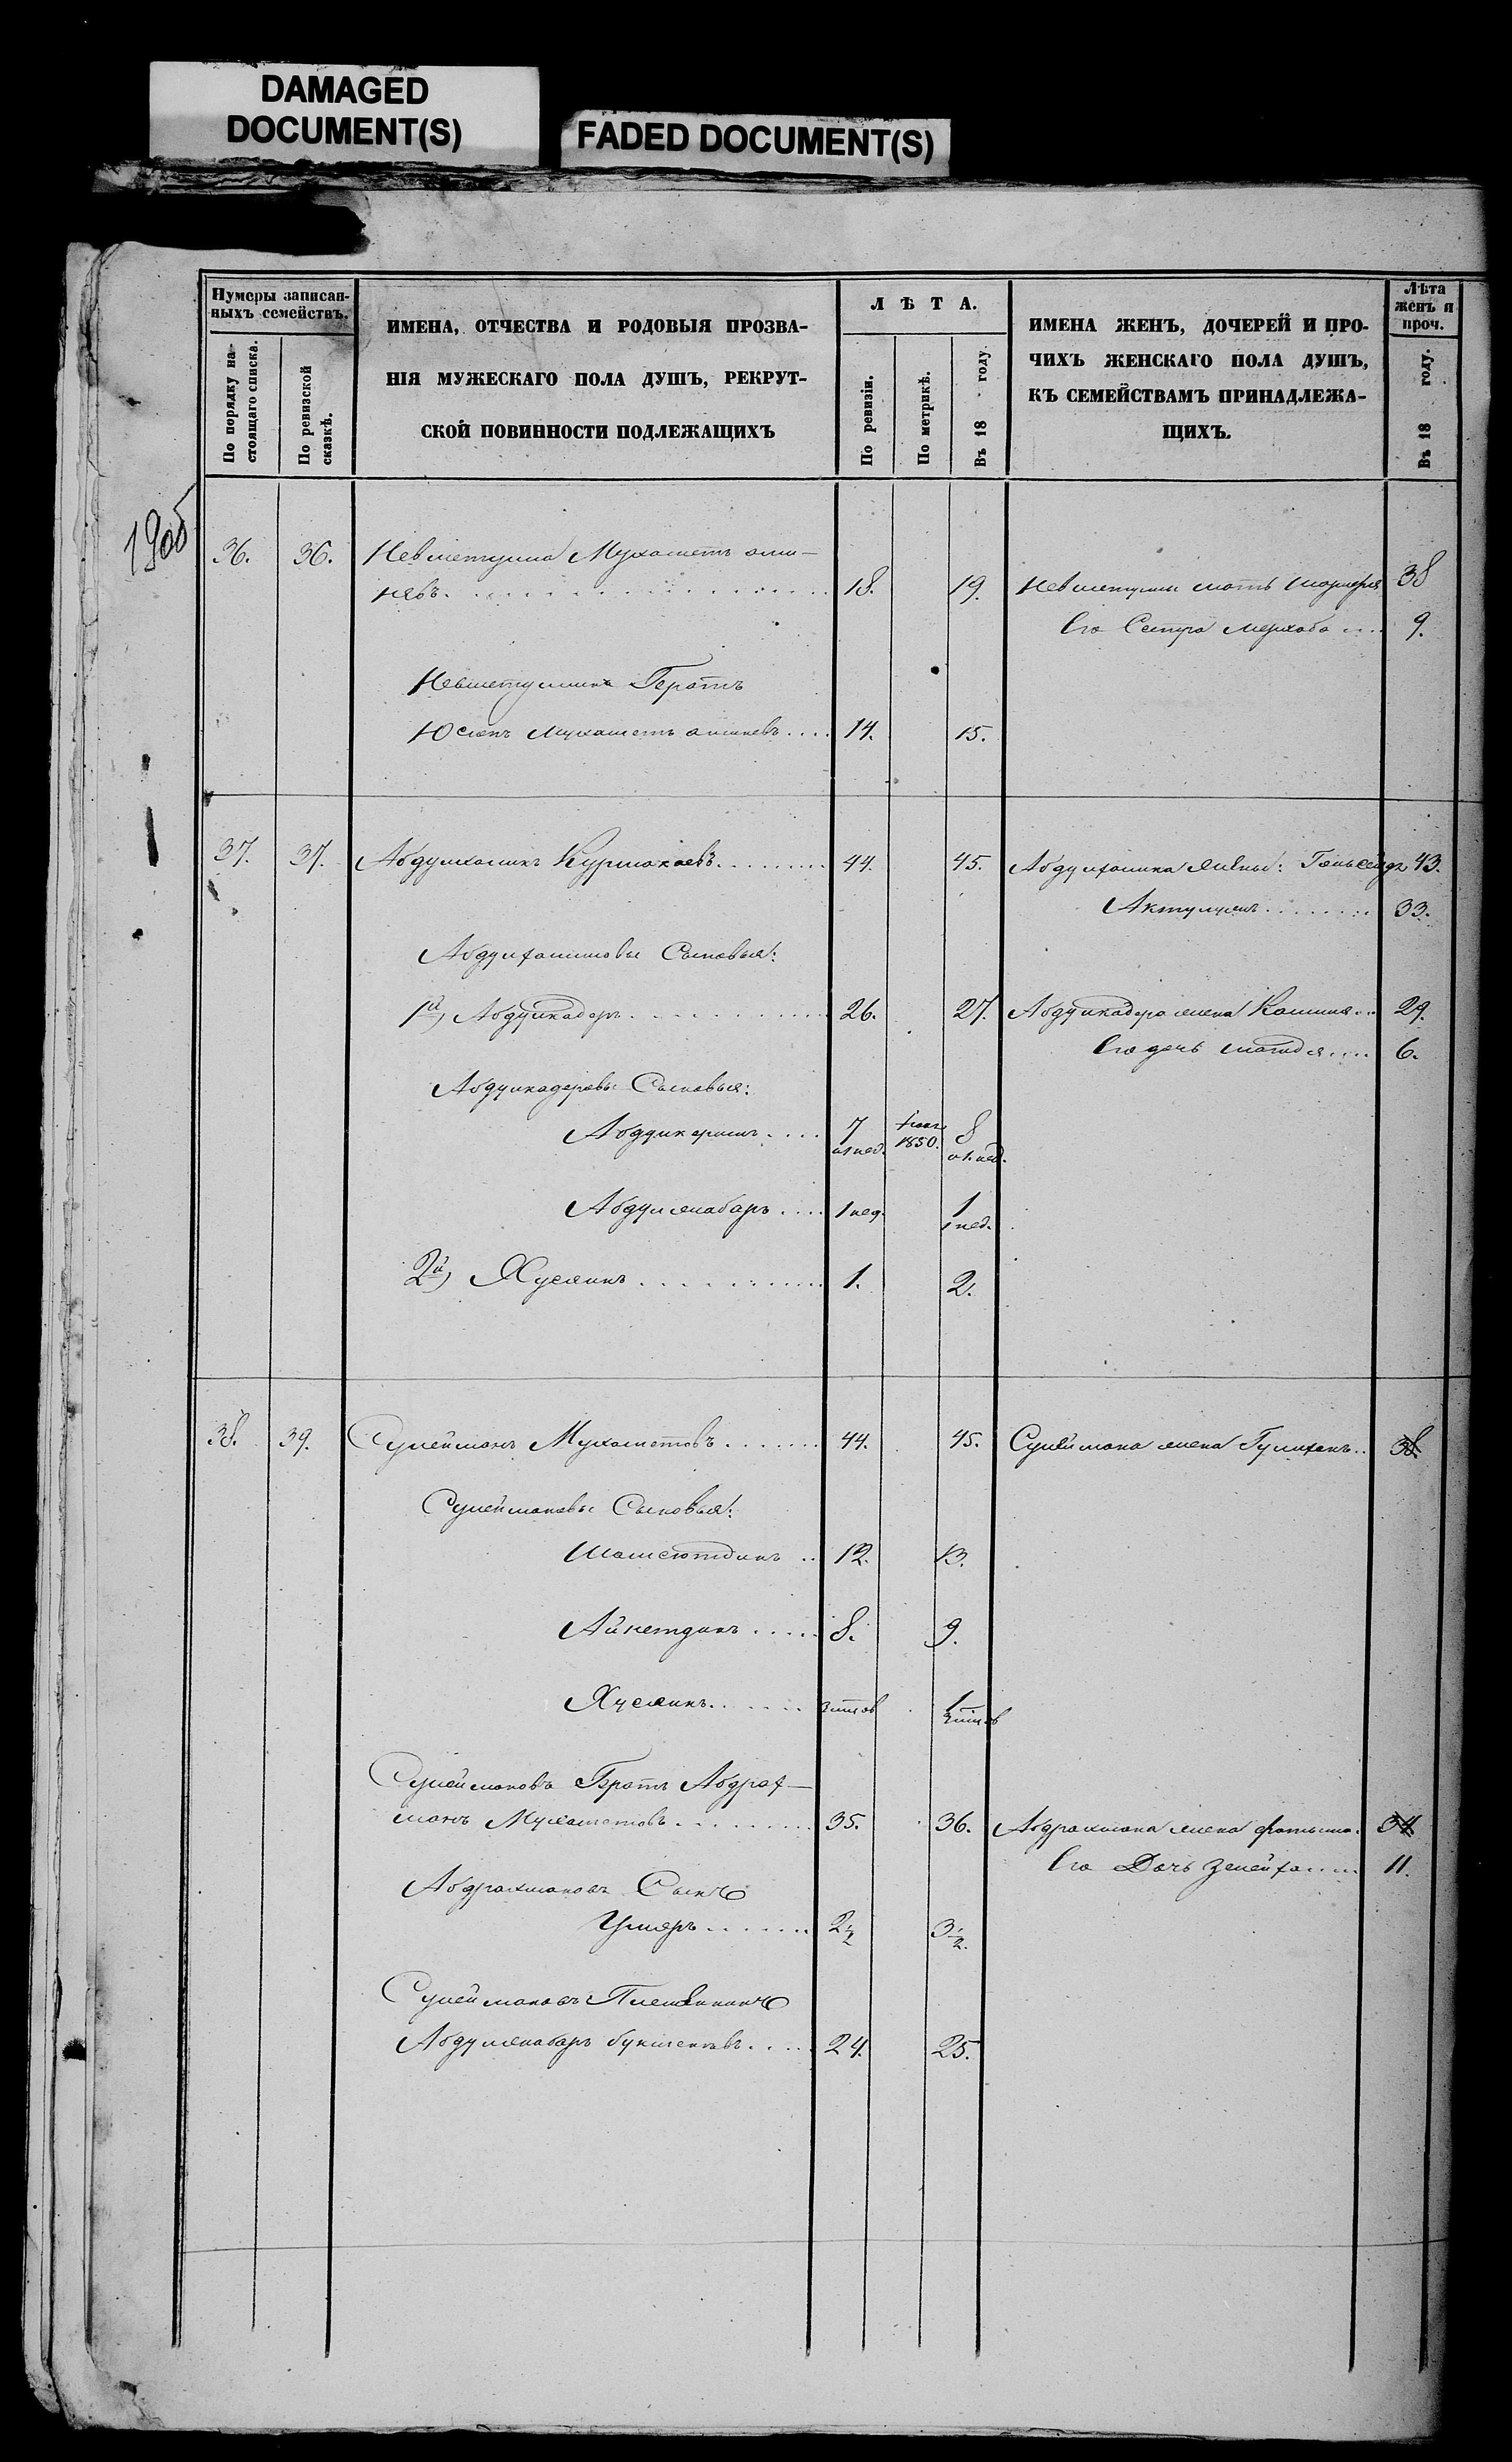 DAMAGED
DOCUMENT(S)
FADED DOCUMENT(S)
Нумеры записан-
ныхъ семействъ.
По порядку на-
стоящаго списка.
По ревизской
сказкѣ.
ИМЕНА, ОТЧЕСТВА И РОДОВЫЯ ПРОЗВА-
НІЯ МУЖЕСКАГО ПОЛА ДУШЪ, РЕКРУТ-
СКОЙ ПОВИННОСТИ ПОДЛЕЖАЩИХЪ
ЛѢТА.
По ревизіи.
По метрикѣ.
Въ 18 году
ИМЕНА ЖЕНЪ, ДОЧЕРЕЙ И ПРО-
ЧИХЪ ЖЕНСКАГО ПОЛА ДУШЪ,
КЪ СЕМЕЙСТВАМЪ ПРИНАДЛЕЖА-
ЩИХЪ.
Лѣта
женъ и
проч.
Въ 18 году.
36. 36. Мухаметъ ами-
невъ 18. 19. мать 38
Его Сестра 9.
Братъ
Юсепъ Мухаметъ аминевъ 14. 15.
37. 37. Абдулхаликъ Курмакаевъ 44. 45. Абдулхалика жены: 43.
33.
Сыновья:
1й, Абдулкадеръ 26. 27. Абдулкадера жена 29.
Его дочь 6.
Абдулкадеровы Сыновья:
7 1850. 8
Абдулжабаръ 1 нед. 1
1 нед.
2й, Хусаинъ 1. 2.
38. 39. Сулейманъ Мухаметовъ 44. 45. Сулеймана жена 38
Сулеймановы Сыновья:
Шамсютдинъ 12. 13.
Айнетдинъ 8. 9.
Хусаинъ 1
Сулейманова Братъ Абдрах-
манъ Мухаметовъ 35. 36. Абдрахмана жена Фатыма 34
Его Дочь 11.
Абдрахмановъ Сынъ
Умеръ 2½ 3½.
Сулеймановъ Племянникъ
Абдулжабаръ 24. 25.